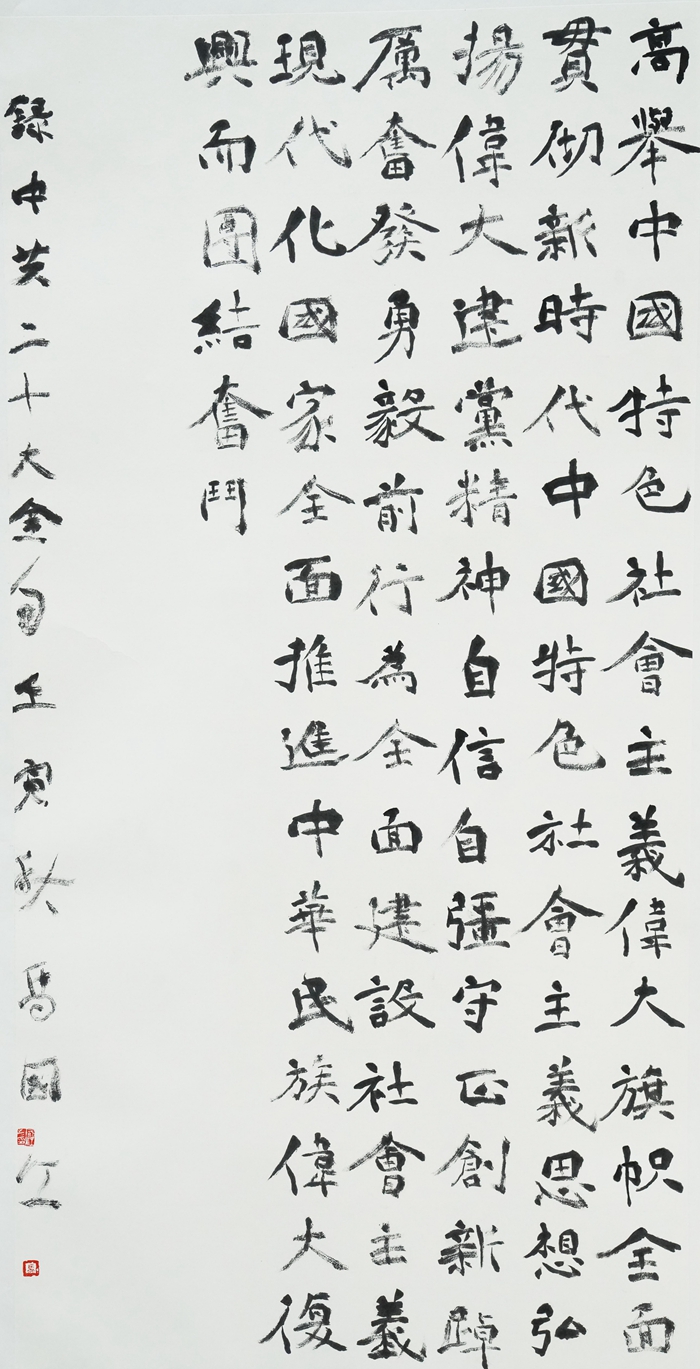 高舉中國特色社會主義偉大旗幟全面
貫彻新時代中國特色社會主義思想弘
揚偉大建黨精神自信自彊守正創新踔
厲奮發勇毅前行為全面建設社會主義
現代化國家全面推進中華民族偉大復
興而團結奮鬥
録中共二十大金句壬寅秋